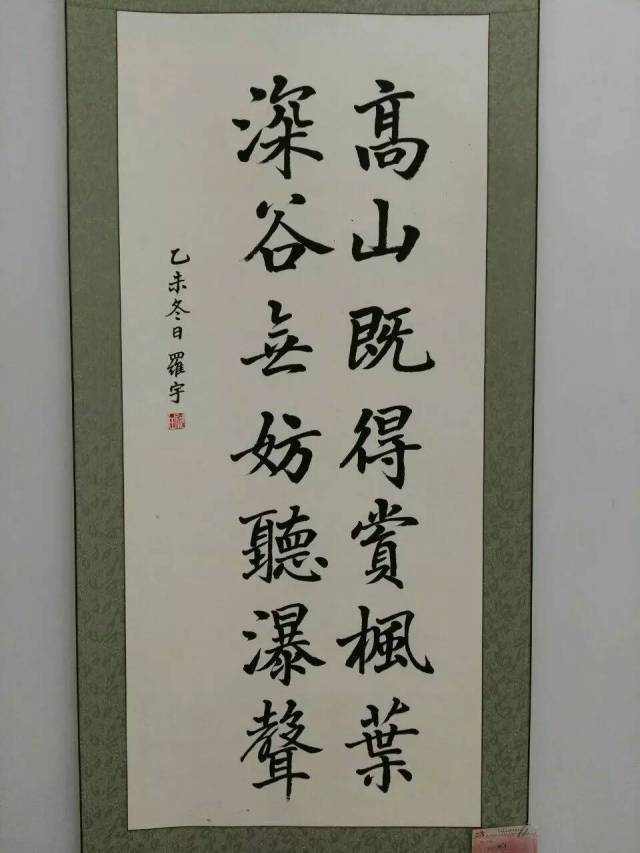 高山既得賞楓葉
深谷無妨聽瀑聲
乙未冬日羅宇